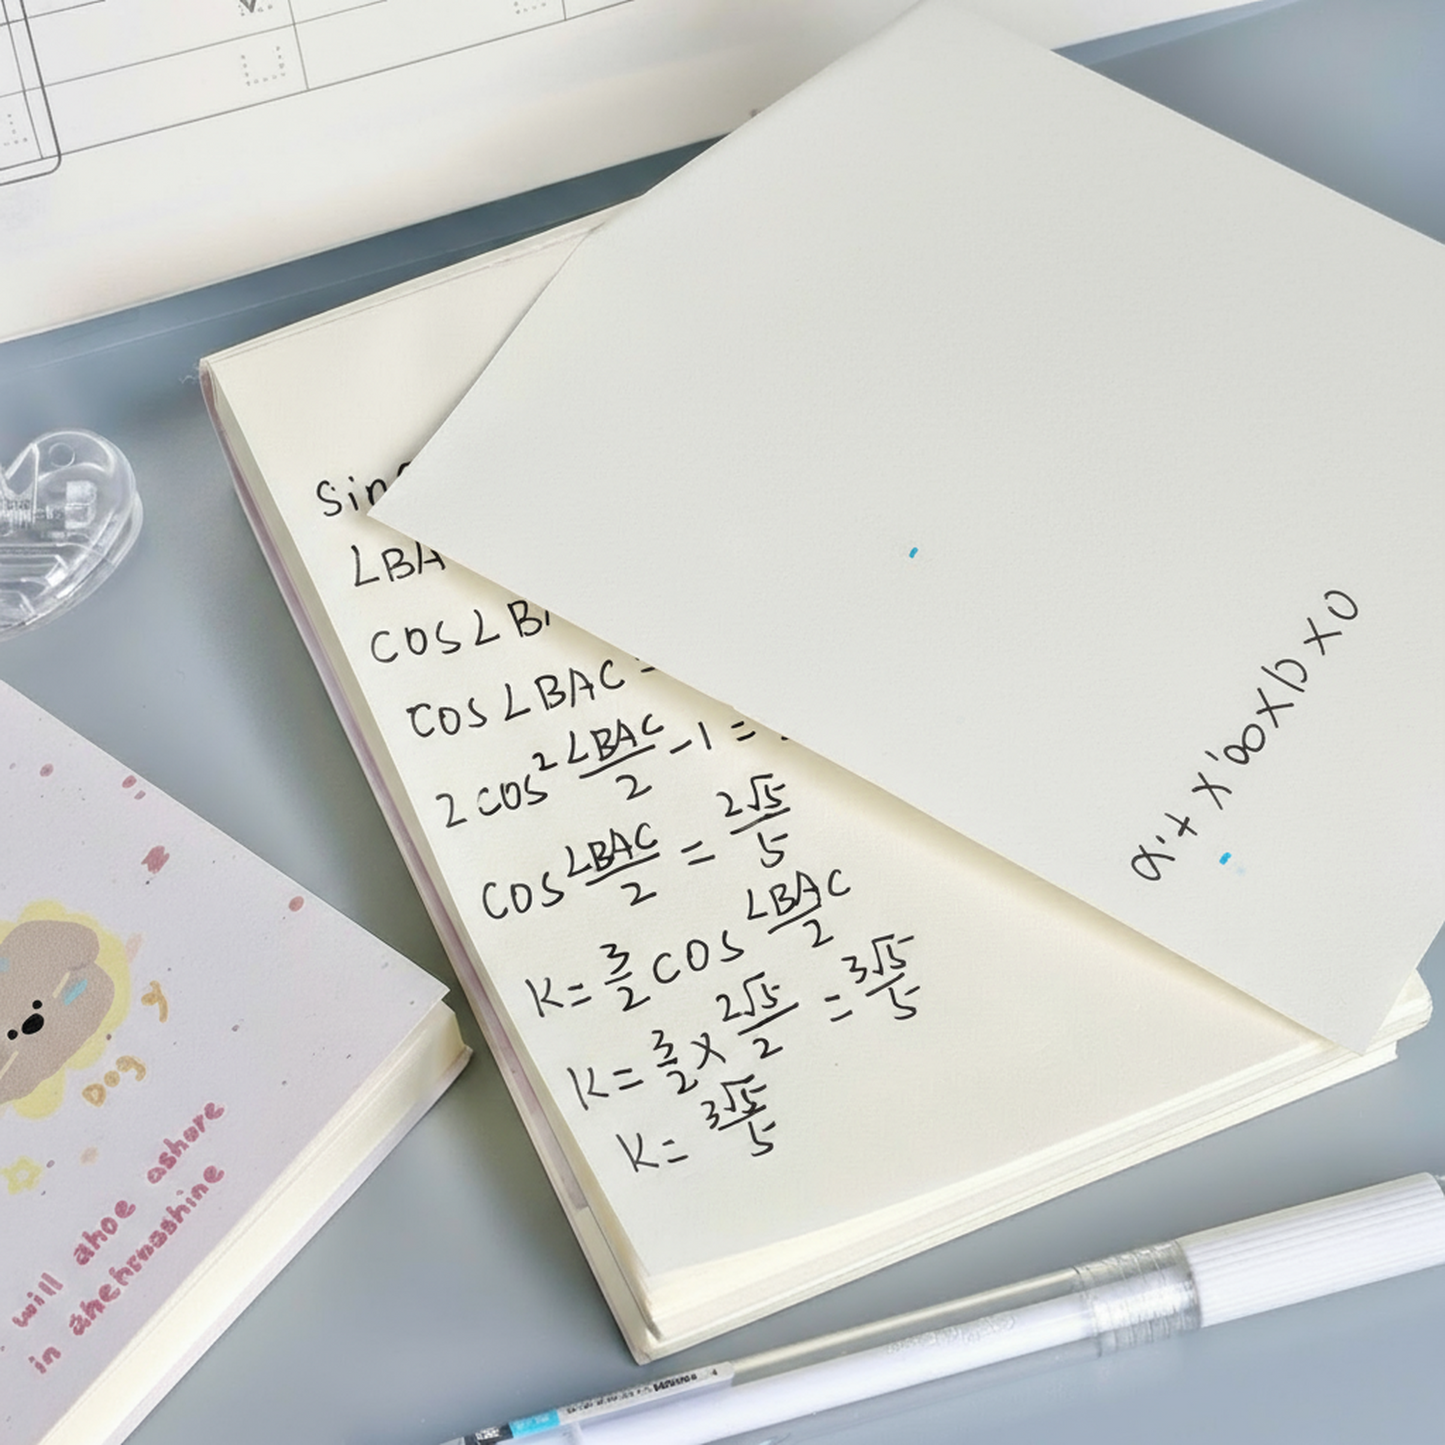 Sin
∠BA
cos∠B
cos∠BAC =
2cos²∠BAC/2 -1 =
cos∠BAC/2 = 2√5/5
K= 3/2 cos ∠BAC/2
K= 3/2 × 2√5/2 = 3√5/5
K= 3√5/5
Dog
will ahoe ashore
in ahehrnashine